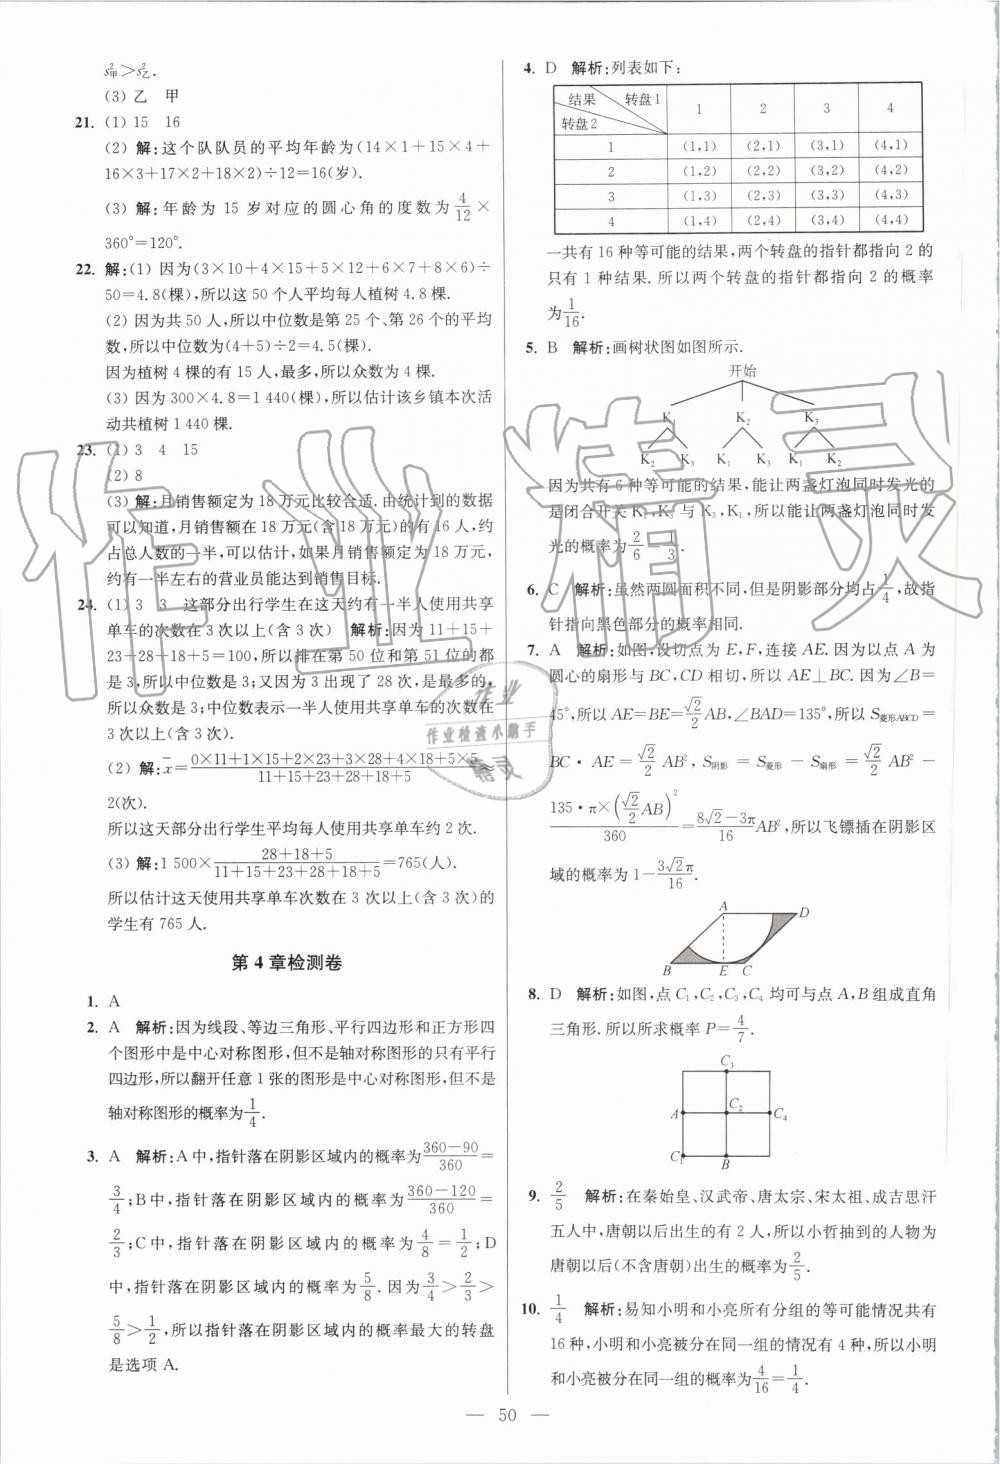 s²甲＞s²乙.
(3) 乙　甲
21. (1) 15　16
(2) 解:这个队队员的平均年龄为(14×1＋15×4＋
16×3＋17×2＋18×2)÷12＝16(岁).
(3) 解:年龄为 15 岁对应的圆心角的度数为 4/12 ×
360°＝120°.
22. 解:(1) 因为(3×10＋4×15＋5×12＋6×7＋8×6)÷
50＝4.8(棵),所以这 50 个人平均每人植树 4.8 棵.
(2) 因为共 50 人,所以中位数是第 25 个、第 26 个的平均
数,所以中位数为(4＋5)÷2＝4.5(棵).
因为植树 4 棵的有 15 人,最多,所以众数为 4 棵.
(3) 因为 300×4.8＝1 440(棵),所以估计该乡镇本次活
动共植树 1 440 棵.
23. (1) 3　4　15
(2) 8
(3) 解:月销售额定为 18 万元比较合适.由统计到的数据
可以知道,月销售额在 18 万元(含 18 万元)的有 16 人,约
占总人数的一半,可以估计,如果月销售额定为 18 万元,
约有一半左右的营业员能达到销售目标.
24. (1) 3　3　这部分出行学生在这天约有一半人使用共享
单车的次数在 3 次以上(含 3 次)　解析:因为 11＋15＋
23＋28＋18＋5＝100,所以排在第 50 位和第 51 位的都
是 3,所以中位数是 3;又因为 3 出现了 28 次,是最多的,
所以众数是 3;中位数表示一半人使用共享单车的次数在
3 次以上(含 3 次).
(2) 解: x̄＝(0×11＋1×15＋2×23＋3×28＋4×18＋5×5)/(11＋15＋23＋28＋18＋5)≈
2(次).
所以这天部分出行学生平均每人使用共享单车约 2 次.
(3) 解:1 500×(28＋18＋5)/(11＋15＋23＋28＋18＋5)＝765(人).
所以估计这天使用共享单车次数在 3 次以上(含 3 次)的
学生有 765 人.
第 4 章检测卷
1. A
2. A　解析:因为线段、等边三角形、平行四边形和正方形四
个图形中是中心对称图形,但不是轴对称图形的只有平行
四边形,所以翻开任意 1 张的图形是中心对称图形,但不是
轴对称图形的概率为 1/4.
3. A　解析:A 中,指针落在阴影区域内的概率为 (360－90)/360＝
3/4;B 中,指针落在阴影区域内的概率为 (360－120)/360＝
2/3;C 中,指针落在阴影区域内的概率为 4/8＝1/2;D
中,指针落在阴影区域内的概率为 5/8.因为 3/4＞2/3＞
5/8＞1/2,所以指针落在阴影区域内的概率最大的转盘
是选项 A.
4. D　解析:列表如下:
结果　转盘1　转盘2　1　2　3　4
1　(1,1)　(2,1)　(3,1)　(4,1)
2　(1,2)　(2,2)　(3,2)　(4,2)
3　(1,3)　(2,3)　(3,3)　(4,3)
4　(1,4)　(2,4)　(3,4)　(4,4)
一共有 16 种等可能的结果,两个转盘的指针都指向 2 的
只有 1 种结果.所以两个转盘的指针都指向 2 的概率
为 1/16.
5. B　解析:画树状图如图所示.
开始
K₁　K₂　K₃
K₂　K₃　K₁　K₃　K₁　K₂
因为共有 6 种等可能的结果,能让两盏灯泡同时发光的
是闭合开关 K₁,K₃ 与 K₃,K₁,所以能让两盏灯泡同时发
光的概率为 2/6＝1/3.
6. C　解析:虽然两圆面积不同,但是阴影部分均占 1/4,故指
针指向黑色部分的概率相同.
7. A　解析:如图,设切点为 E,F,连接 AE.因为以点 A 为
圆心的扇形与 BC,CD 相切,所以 AE⊥BC.因为∠B＝
45°,所以 AE＝BE＝√2/2 AB,∠BAD＝135°,所以 S菱形ABCD＝
BC·AE＝√2/2 AB²,S阴影＝S菱形－S扇形＝√2/2 AB²－
135·π×(√2/2 AB)²/360＝(8√2－3π)/16 AB²,所以飞镖插在阴影区
域的概率为 1－3√2π/16.
A　D
B　E　C
8. D　解析:如图,点 C₁,C₂,C₃,C₄ 均可与点 A,B 组成直角
三角形.所以所求概率 P＝4/7.
C₃
A　C₂　C₄
C₁　B
9. 2/5　解析:在秦始皇、汉武帝、唐太宗、宋太祖、成吉思汗
五人中,唐朝以后出生的有 2 人,所以小哲抽到的人物为
唐朝以后(不含唐朝)出生的概率为 2/5.
10. 1/4　解析:易知小明和小亮所有分组的等可能情况共有
16 种,小明和小亮被分在同一组的情况有 4 种,所以小明
和小亮被分在同一组的概率为 4/16＝1/4.
— 50 —
作业精灵
作业
作业检查小助手
精灵